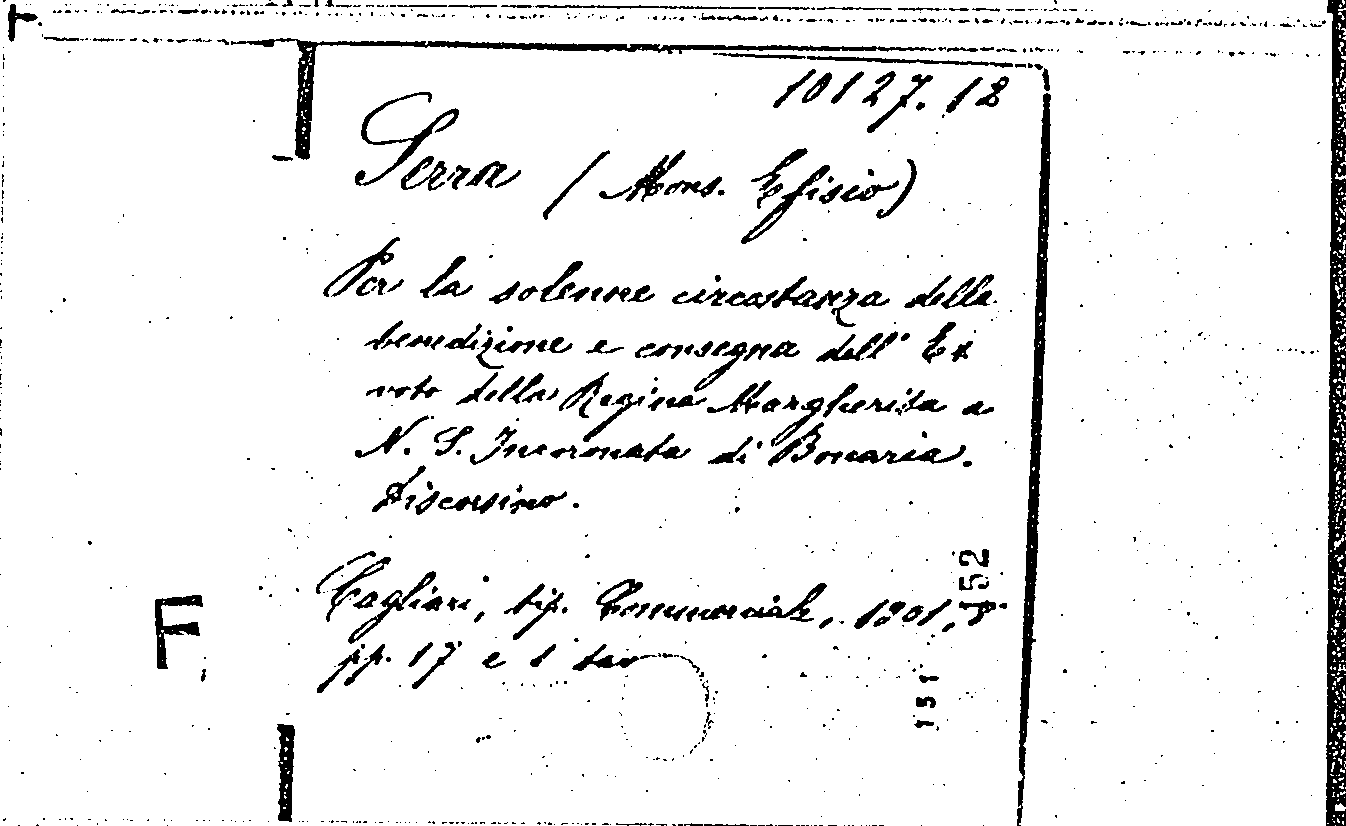 10127.12
Serra (Mons. Efisio)
Per la solenne circostanza della
benedizione e consegna dell' Ex
voto della Regina Margherita a
N. S. Incoronata di Bonaria.
Discorsino.
Cagliari, tip. Commerciale, 1901, 8°
pp. 17 e 1 tav
152
151
F